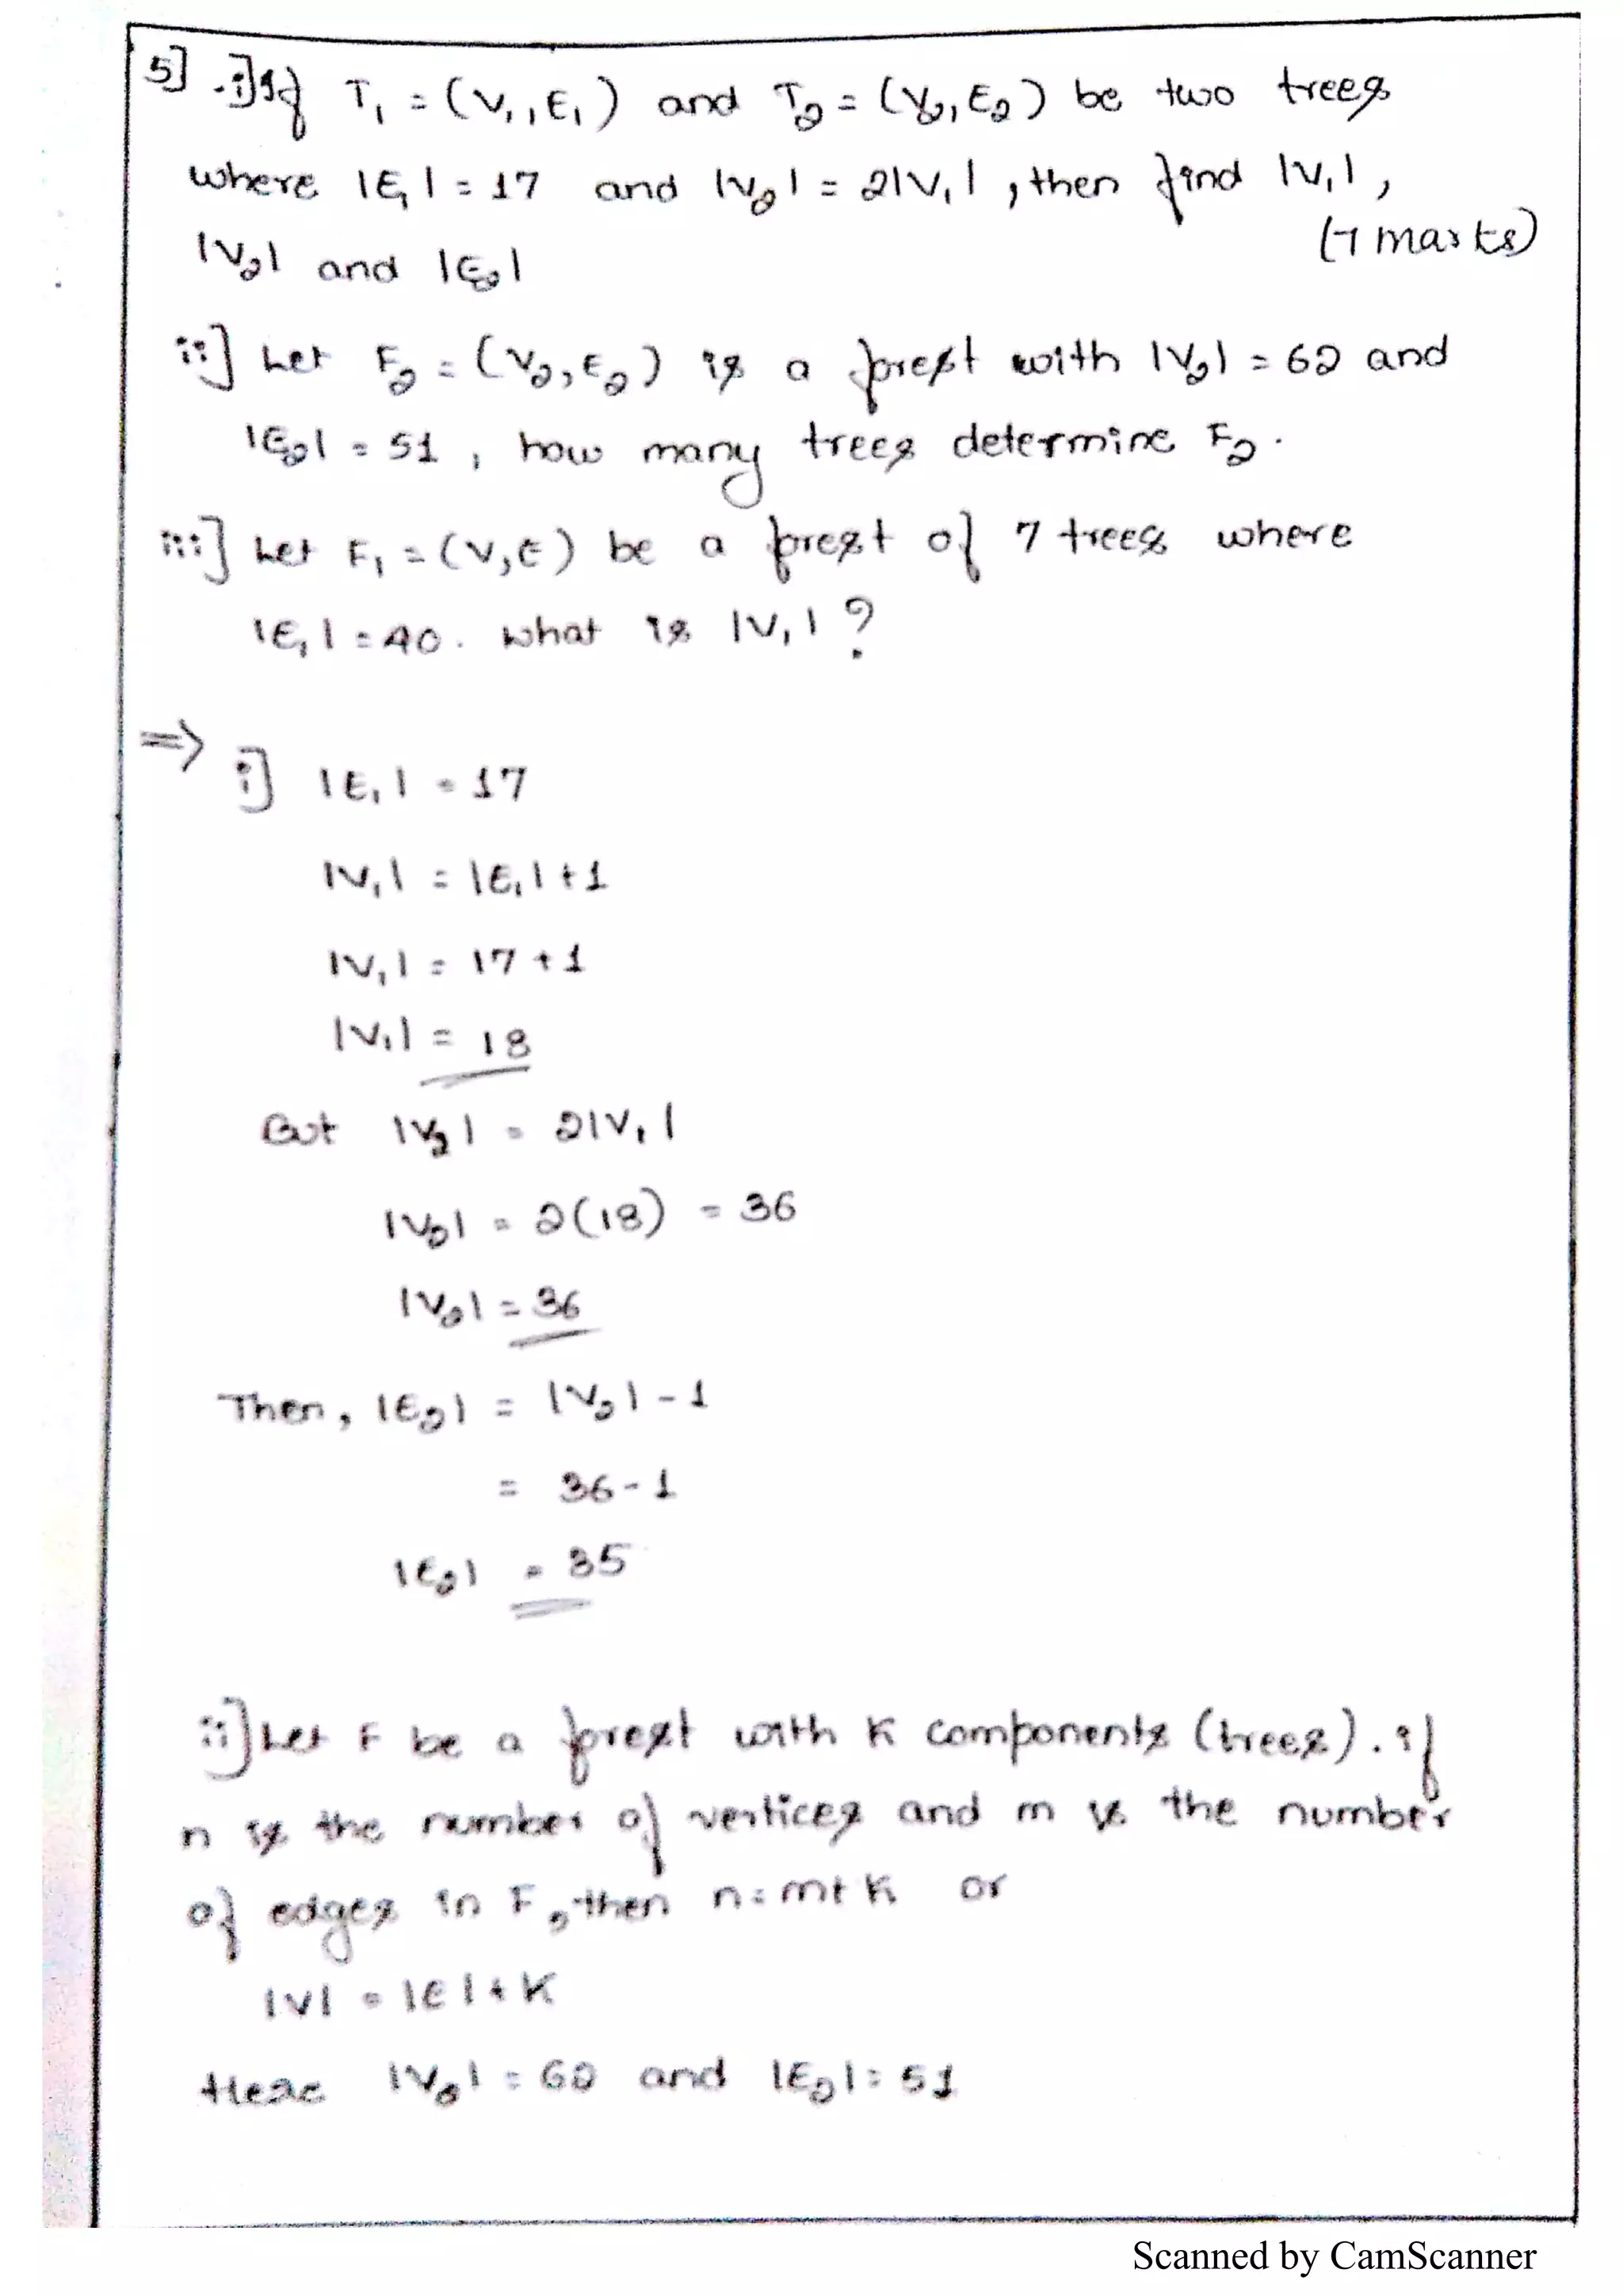 5] i] If T₁ = (V₁, E₁) and T₂ = (V₂, E₂) be two trees
where |E₁| = 17 and |V₂| = 2|V₁|, then find |V₁|,
(7 marks)
|V₂| and |E₂|
ii] Let F₂ = (V₂, E₂) is a forest with |V₂| = 62 and
|E₂| = 51, how many trees determine F₂.
iii] Let F₁ = (V, E) be a forest of 7 trees where
|E₁| = 40. What is |V₁| ?
⇒ i] |E₁| = 17
|V₁| = |E₁| + 1
|V₁| = 17 + 1
|V₁| = 18
But |V₂| = 2|V₁|
|V₂| = 2(18) = 36
|V₂| = 36
Then, |E₂| = |V₂| - 1
= 36 - 1
|E₂| = 35
ii] Let F be a forest with K components (trees). if
n is the number of vertices and m is the number
of edges in F, then n = m + K or
|V| = |E| + K
Here |V₂| = 62 and |E₂| = 51
Scanned by CamScanner